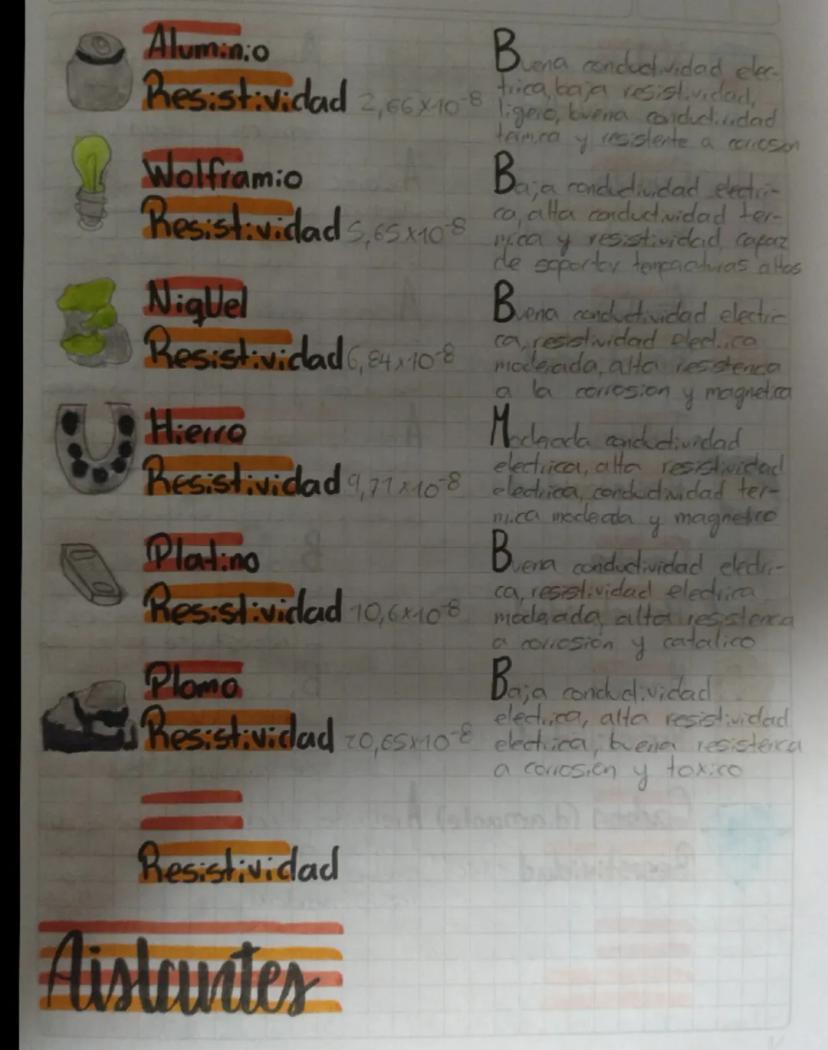 Aluminio
Resistividad 2,66x10-8
Buena conductividad elec-
trica, baja resistividad,
ligero, buena conductividad
termica y resistente a corrosion
Wolframio
Resistividad 5,65x10-8
Baja conductividad electri-
ca, alta conductividad ter-
mica y resistividad, capaz
de soportar altas
NiqUel
Resistividad 6,84x10-8
Buena conductividad electri-
ca, resistividad electrica
moderada, alta resistencia
a la corrosion y magnetica
Hierro
Resistividad 9,71x10-8
Moderada conductividad
electrica, alta resistividad
electrica, conductividad ter-
mica moderada y magnetico
Platino
Resistividad 10,6x10-8
Buena conductividad electri-
ca, resistividad electrica
moderada, alta resistencia
a corrosión y catalico
Plomo
Resistividad 20,65x10-8
Baja conductividad
electrica, alta resistividad
electrica, buena resistencia
a corrosion y toxico
Resistividad
Aislantes